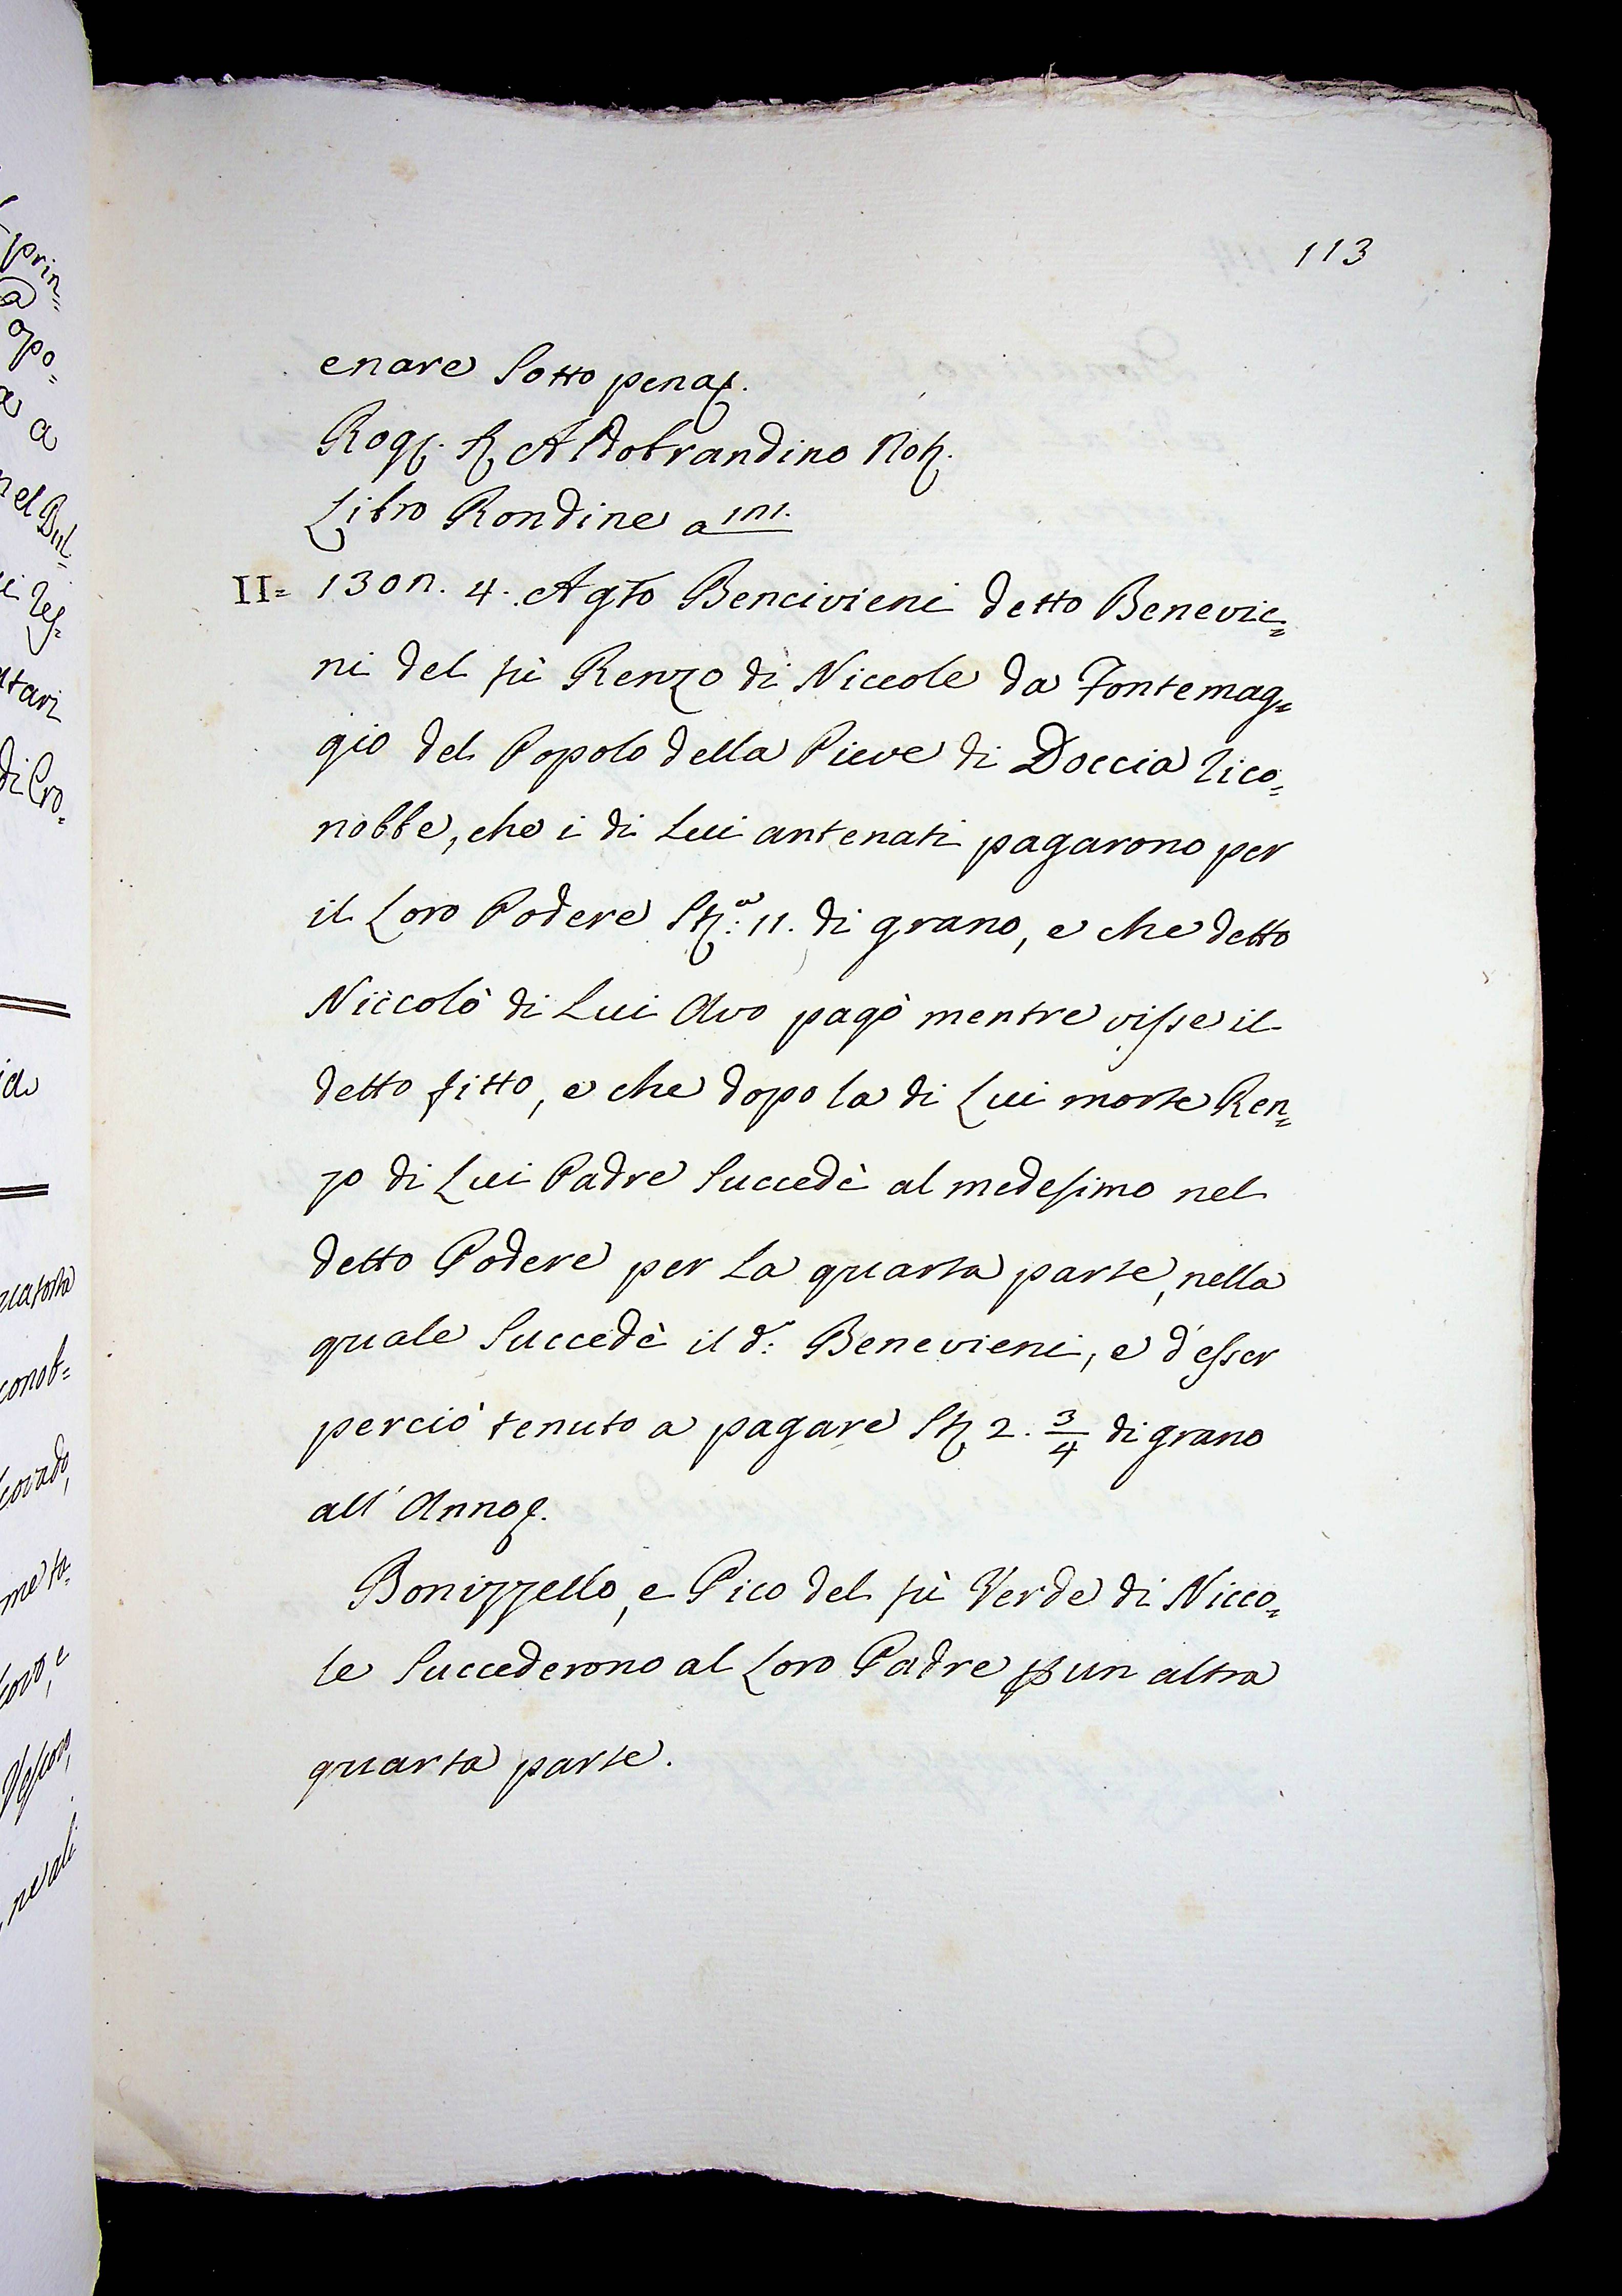 113
enare Sotto pena
Rog. Aldobrandino Not.
Libro Rondine a 101.
II= 1307. 4. Agto Bencivieni detto Benevie=
ni del fù Renzo di Niccole da Fontemag=
gio del Popolo della Pieve di Doccia rico=
nobbe, che i di Lui antenati pagarono per
il Loro Podere Sta: 11. di grano, e che detto
Niccolò di Lui Avo pagò mentre visse il
detto fitto, e che dopo la di Lui morte Ren=
zo di Lui Padre Succedè al medesimo nel
detto Podere per la quarta parte, nella
quale Succedè il do: Benevieni, e d'esser
perciò tenuto a pagare St 2. 3/4 di grano
all'Anno
Bonizzello, e Pico del fù Verde di Nicco=
le Succederono al Loro Padre p un altra
quarta parte.